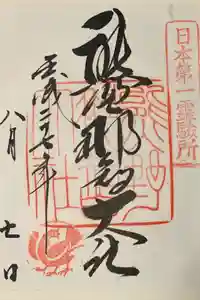 日本第一靈驗所
熊野那智大社
平成二七年
八月七日